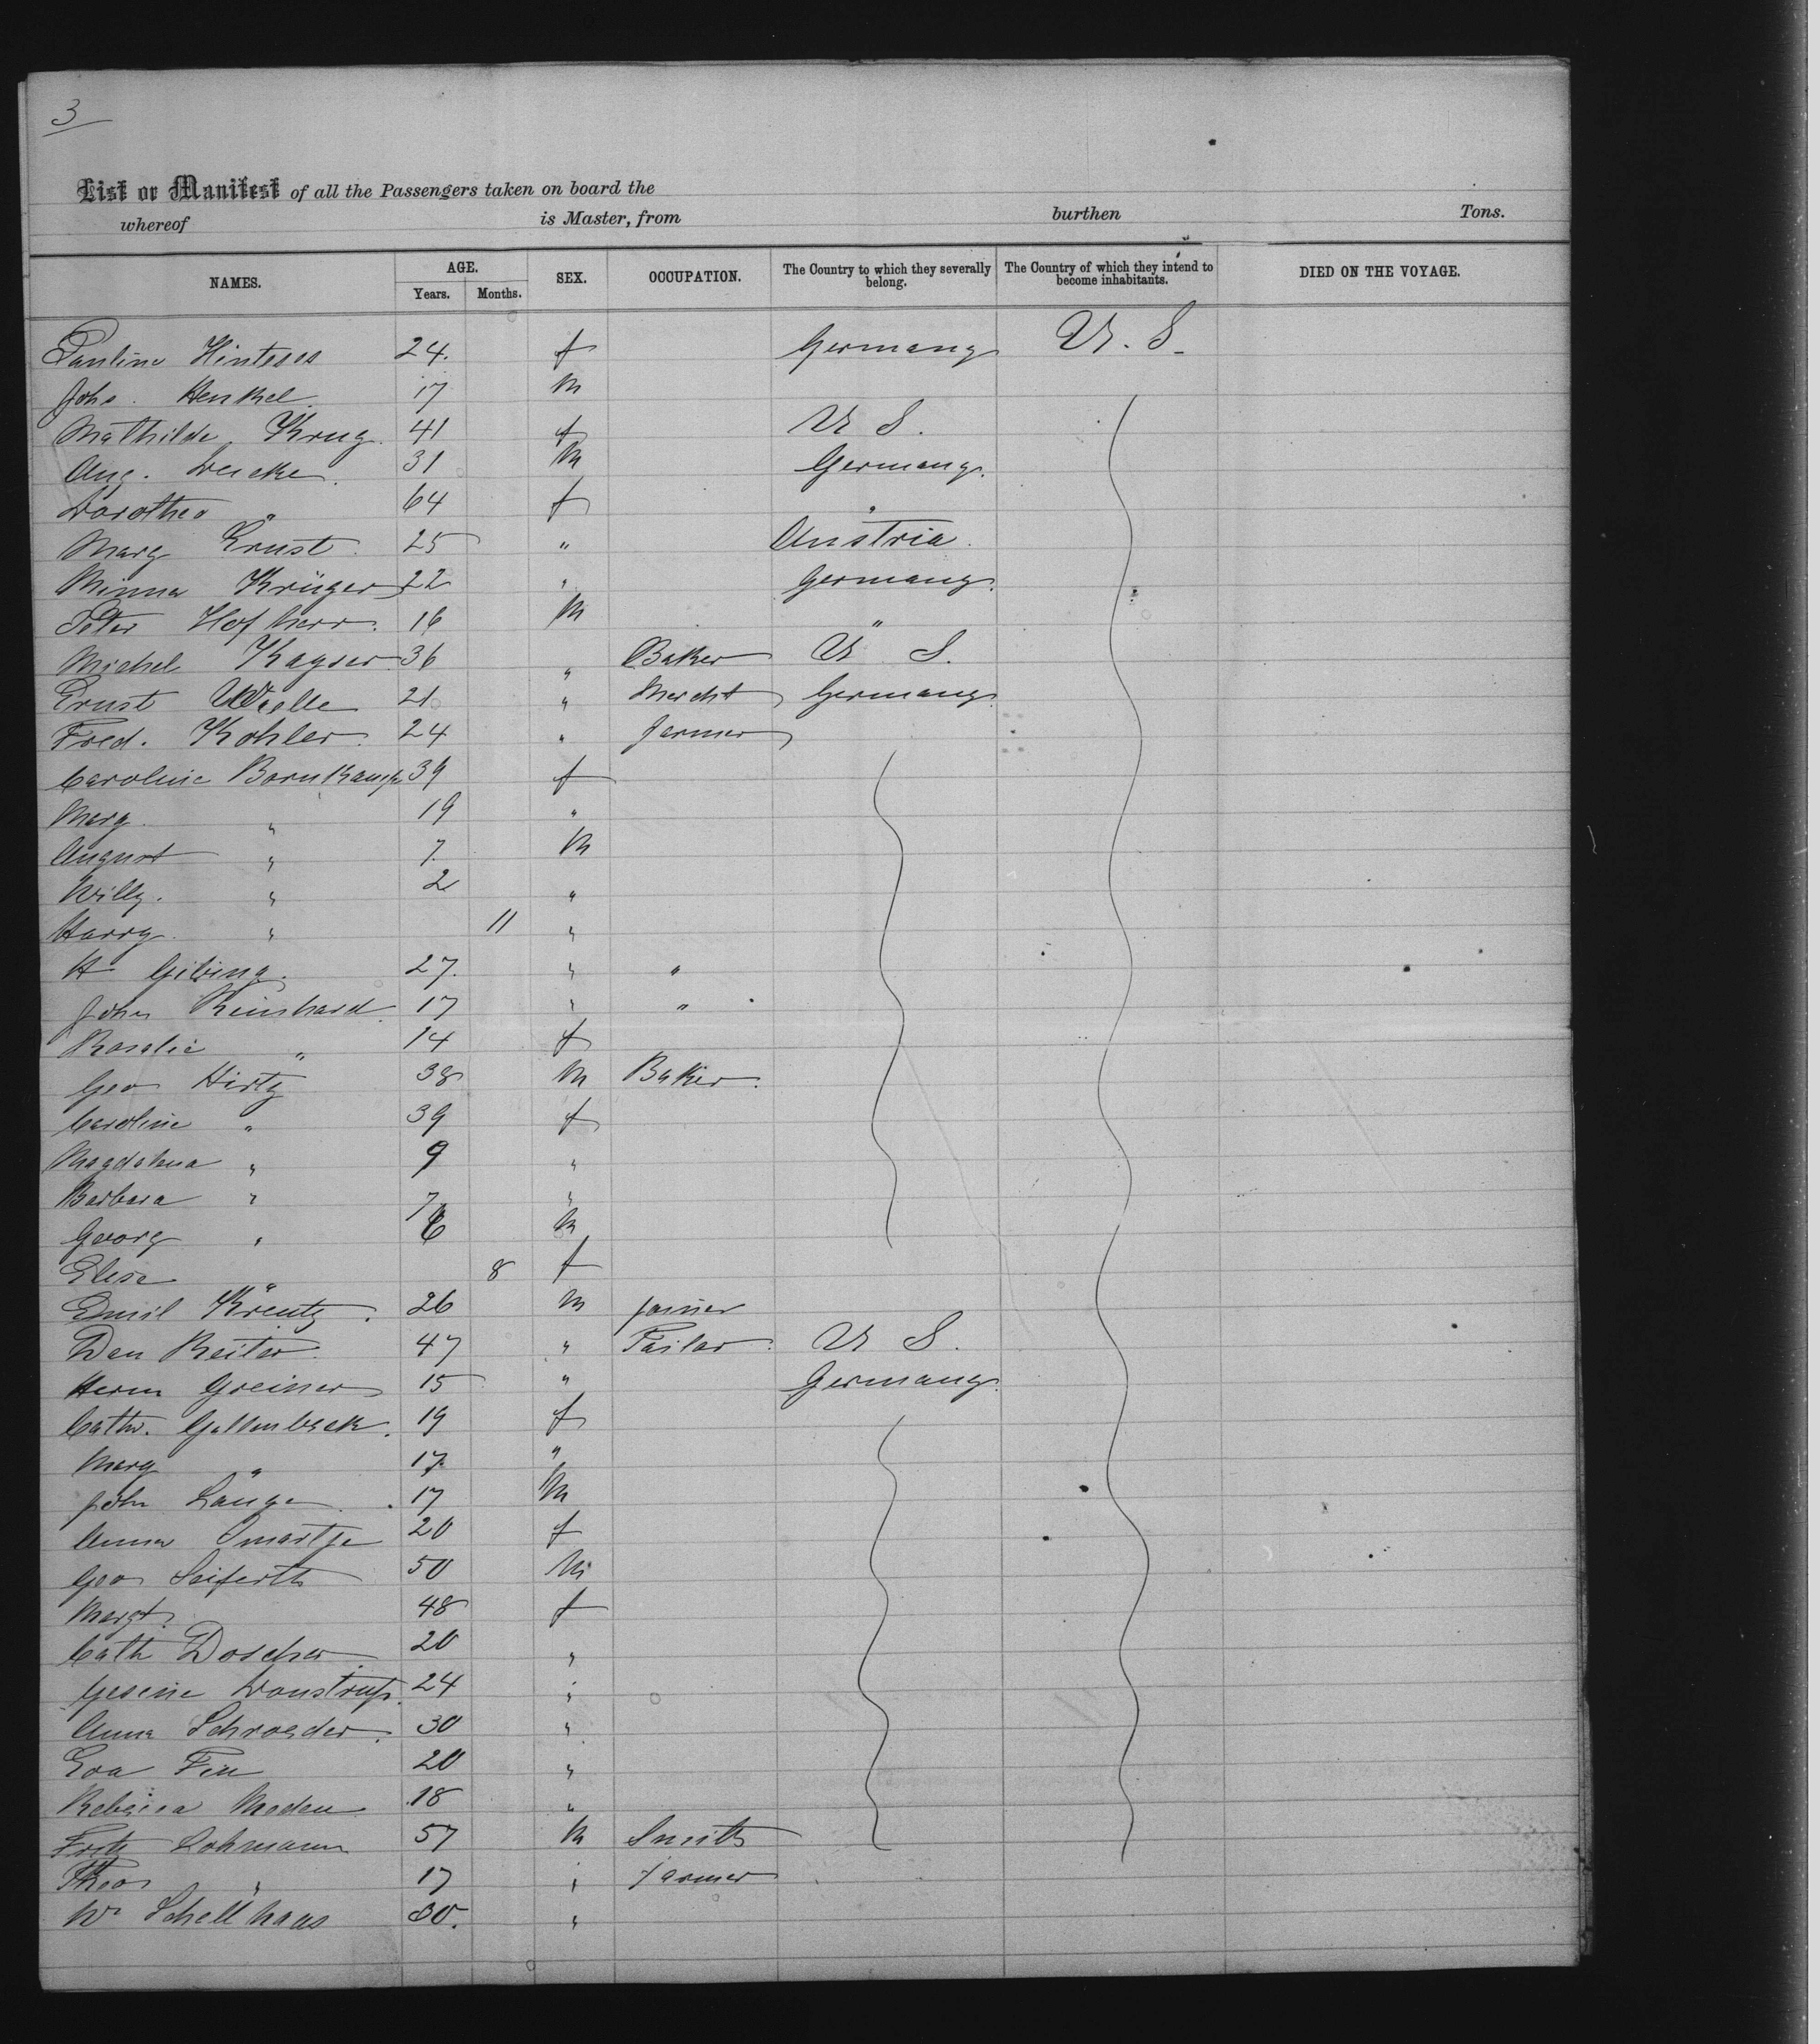 3
List or Manifest of all the Passengers taken on board the
whereof is Master, from burthen Tons.
NAMES. AGE. SEX. OCCUPATION. The Country to which they severally belong. The Country of which they intend to become inhabitants. DIED ON THE VOYAGE.
Years. Months.
Pauline 24. f Germany U.S.
Johs. Henkel. 17 M
Mathilde Krug. 41 f U S.
Aug. 31 M Germany.
Dorothea " 64 f "
Marg Ernst. 25 " Austria.
Minna Krüger 22 " Germany.
Peter Hofherr. 16 M "
Michel Kayser 36 " Baker U S.
Ernst 21 " Mercht Germany
Fred. Kohler. 24 " farmer
Caroline Bornkamp 39 f
Marg. " 19 "
August " 7. M
Willy. " 2 "
Harry. " 11 "
H 27. " "
John Reinhard 17 " "
Rosalie " 14 f
Geo Hirtz 38 M Baker.
Caroline " 39 f
Magdalena " 9 "
Barbara " 7 "
Georg " 6 M
Elise " 8 f
Emil Kreutz. 26 M joiner
Dan Reiter. 47 " Tailor. U S.
Herm Greiner 15 " Germany.
Cathr. 19 f
Marg " 17 "
John Lange. 17 M
Anna 20 f
Geo Seiferth 50 M
Margt. 48 f
Cath Doscher 20 "
Gesine 24 "
Anna Schroeder. 30 "
Eva 20 "
Rebecca Meden 18 "
Fritz Lohmann 57 M Smith
Theo " 17 " Farmer
Wm Schellhaas 30. "